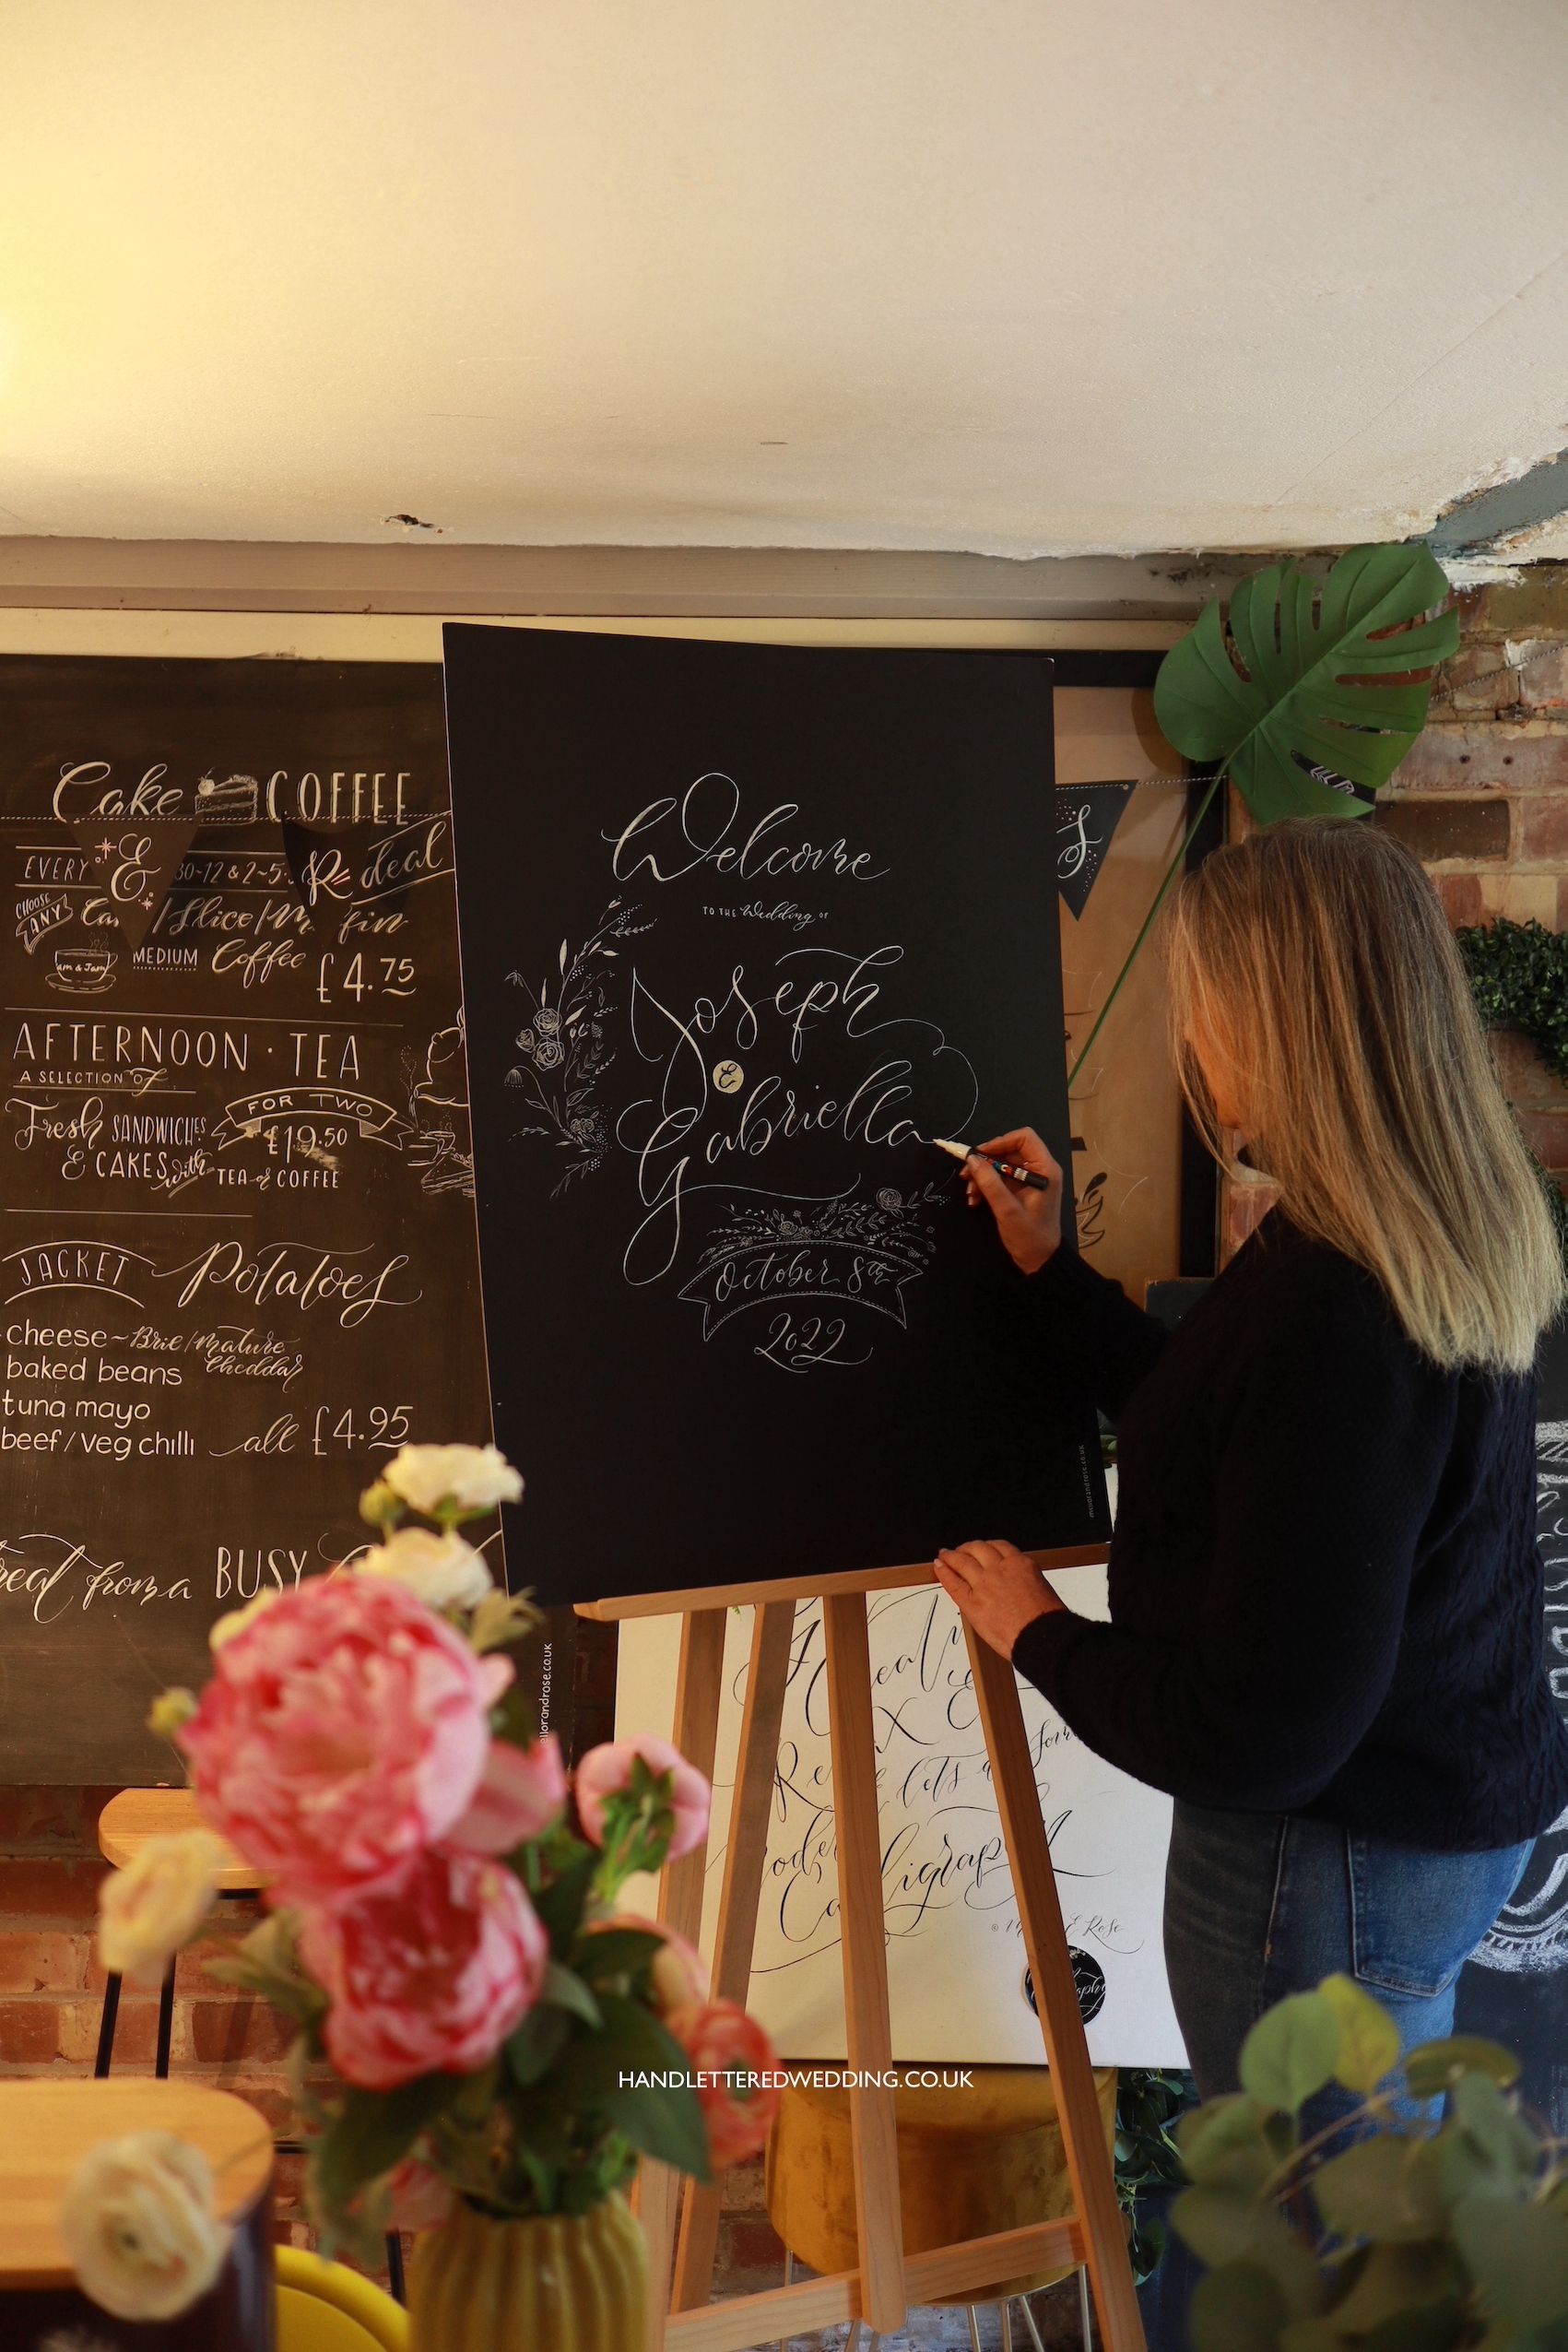 Cake COFFEE
EVERY 30-12 & 2-5
& R deal
CHOOSE ANY /Slice/
MEDIUM Coffee £4.75
AFTERNOON · TEA
A SELECTION OF
FOR TWO
Fresh SANDWICHES £19.50
& CAKES with TEA or COFFEE
JACKET Potatoes
cheese ~ Brie/mature cheddar
baked beans
tuna mayo
beef/veg chilli all £4.95
from a BUSY
ellorandrose.co.uk
Welcome
TO THE Wedding OF
Joseph
&
Gabriella
October 8th
2022
mellorandrose.co.uk
S
lets
HANDLETTEREDWEDDING.CO.UK